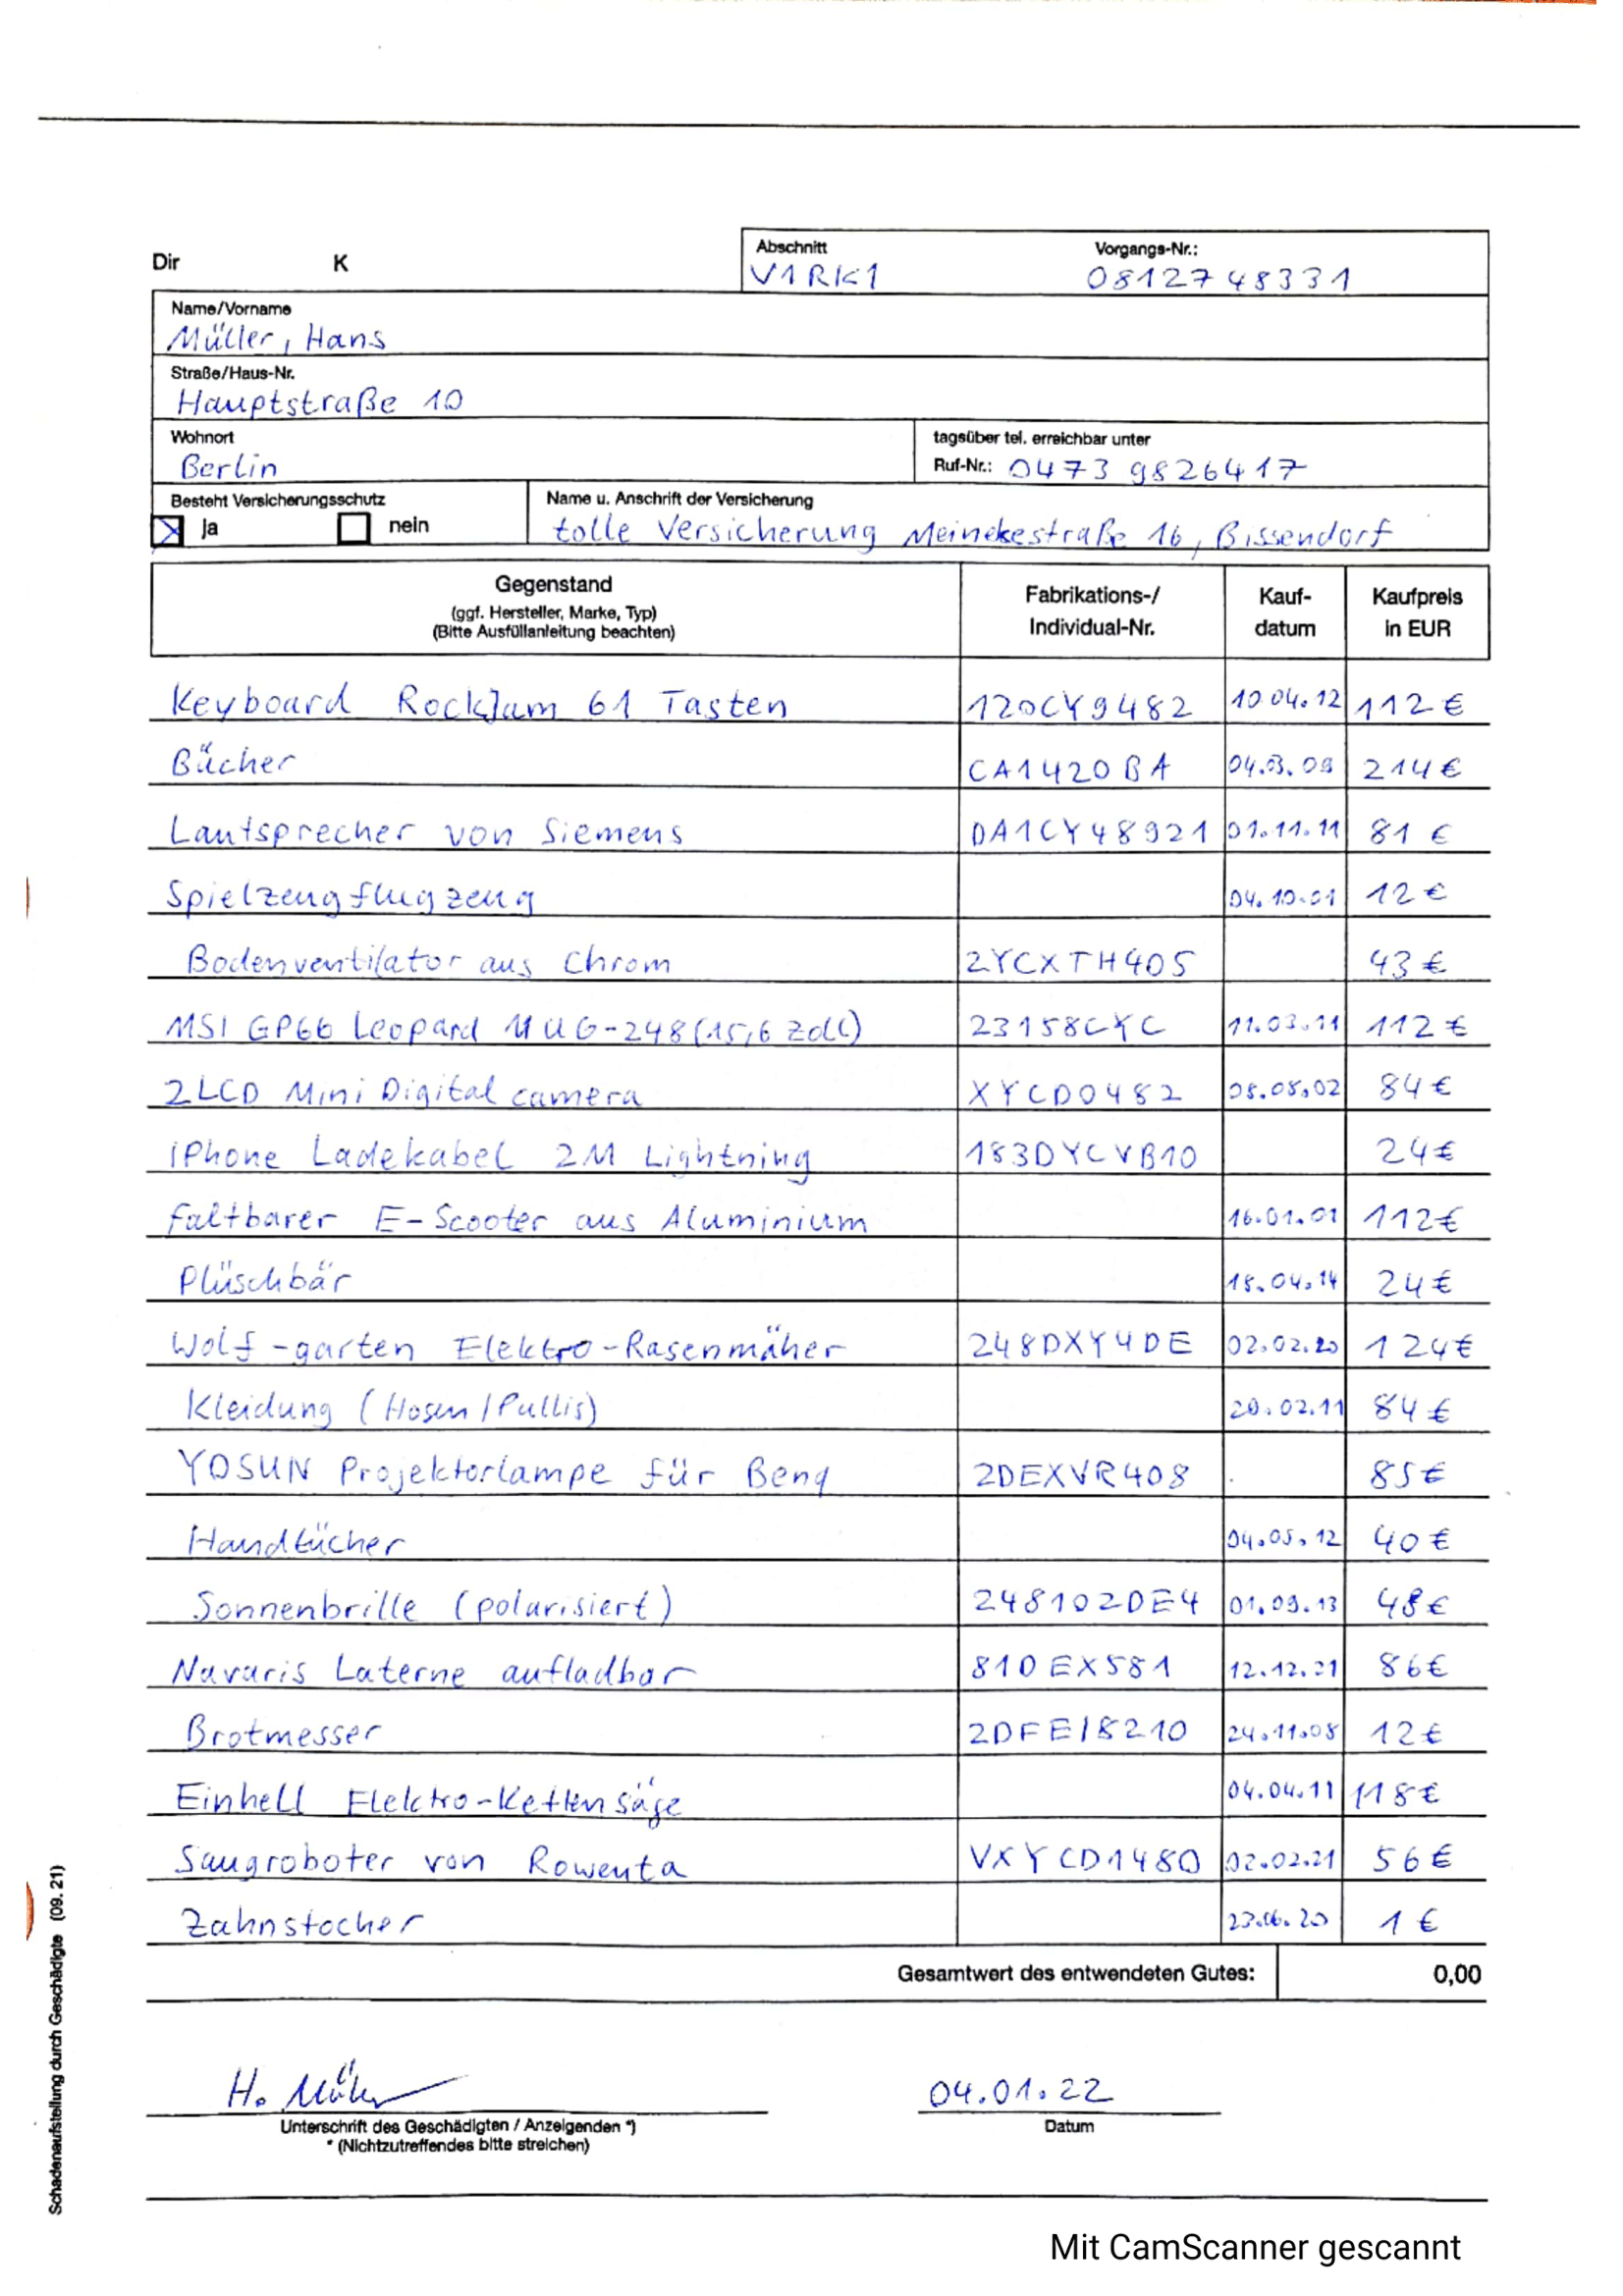 Dir K
Abschnitt Vorgangs-Nr.:
V1RK1 0812748331
Name/Vorname
Müller, Hans
Straße/Haus-Nr.
Hauptstraße 10
Wohnort tagsüber tel. erreichbar unter
Berlin Ruf-Nr.: 0473 9826417
Besteht Versicherungsschutz Name u. Anschrift der Versicherung
ja nein tolle Versicherung Meinekestraße 16, Bissendorf
Gegenstand
(ggf. Hersteller, Marke, Typ)
(Bitte Ausfüllanleitung beachten)
Fabrikations-/
Individual-Nr.
Kauf-
datum
Kaufpreis
in EUR
Keyboard RockJam 61 Tasten 120CY9482 10.04.12 112€
Bücher CA1420BA 04.03.09 214€
Lautsprecher von Siemens DA1CY48921 01.11.11 81 €
Spielzeugflugzeug 04.10.01 12€
Bodenventilator aus Chrom 2YCXTH405 43€
MSI GP66 Leopard 11UG-248(15,6 Zoll) 23158CYC 11.03.11 112€
2LCD Mini Digital camera XYCD0482 08.08.02 84€
iPhone Ladekabel 2M Lightning 183DYCVB10 24€
faltbarer E-Scooter aus Aluminium 16.01.01 112€
Plüschbär 18.04.14 24€
Wolf-garten Elektro-Rasenmäher 248DXY4DE 02.02.20 124€
Kleidung (Hosen/Pullis) 20.02.11 84€
YOSUN Projektorlampe für Benq 2DEXVR408 85€
Handtücher 04.05.12 40€
Sonnenbrille (polarisiert) 248102DE4 01.09.13 48€
Navaris Laterne aufladbar 810EX581 12.12.21 86€
Brotmesser 2DFE18210 24.11.08 12€
Einhell Elektro-Kettensäge 04.04.11 118€
Saugroboter von Rowenta VXYCD1480 02.02.21 56€
Zahnstocher 23.06.20 1 €
Gesamtwert des entwendeten Gutes: 0,00
H. Müller 04.01.22
Unterschrift des Geschädigten / Anzeigenden *) Datum
* (Nichtzutreffendes bitte streichen)
Schadenaufstellung durch Geschädigte (09.21)
Mit CamScanner gescannt